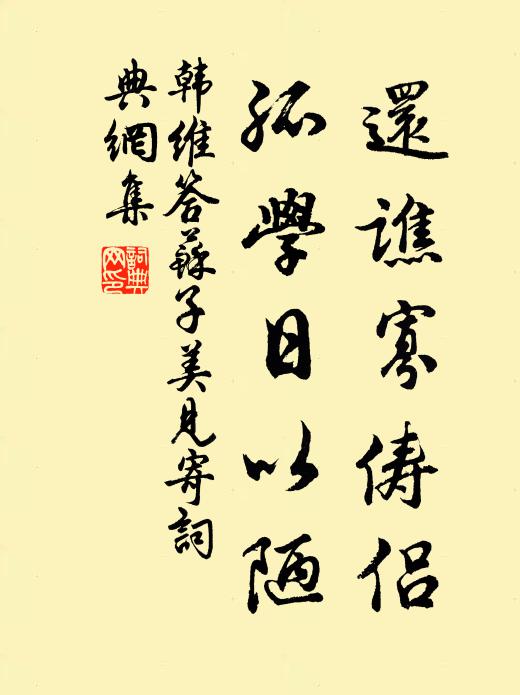 還譙寡俦侣
孤學日以陋
韩維答蘇子美見寄詞
典網集
詞典網印